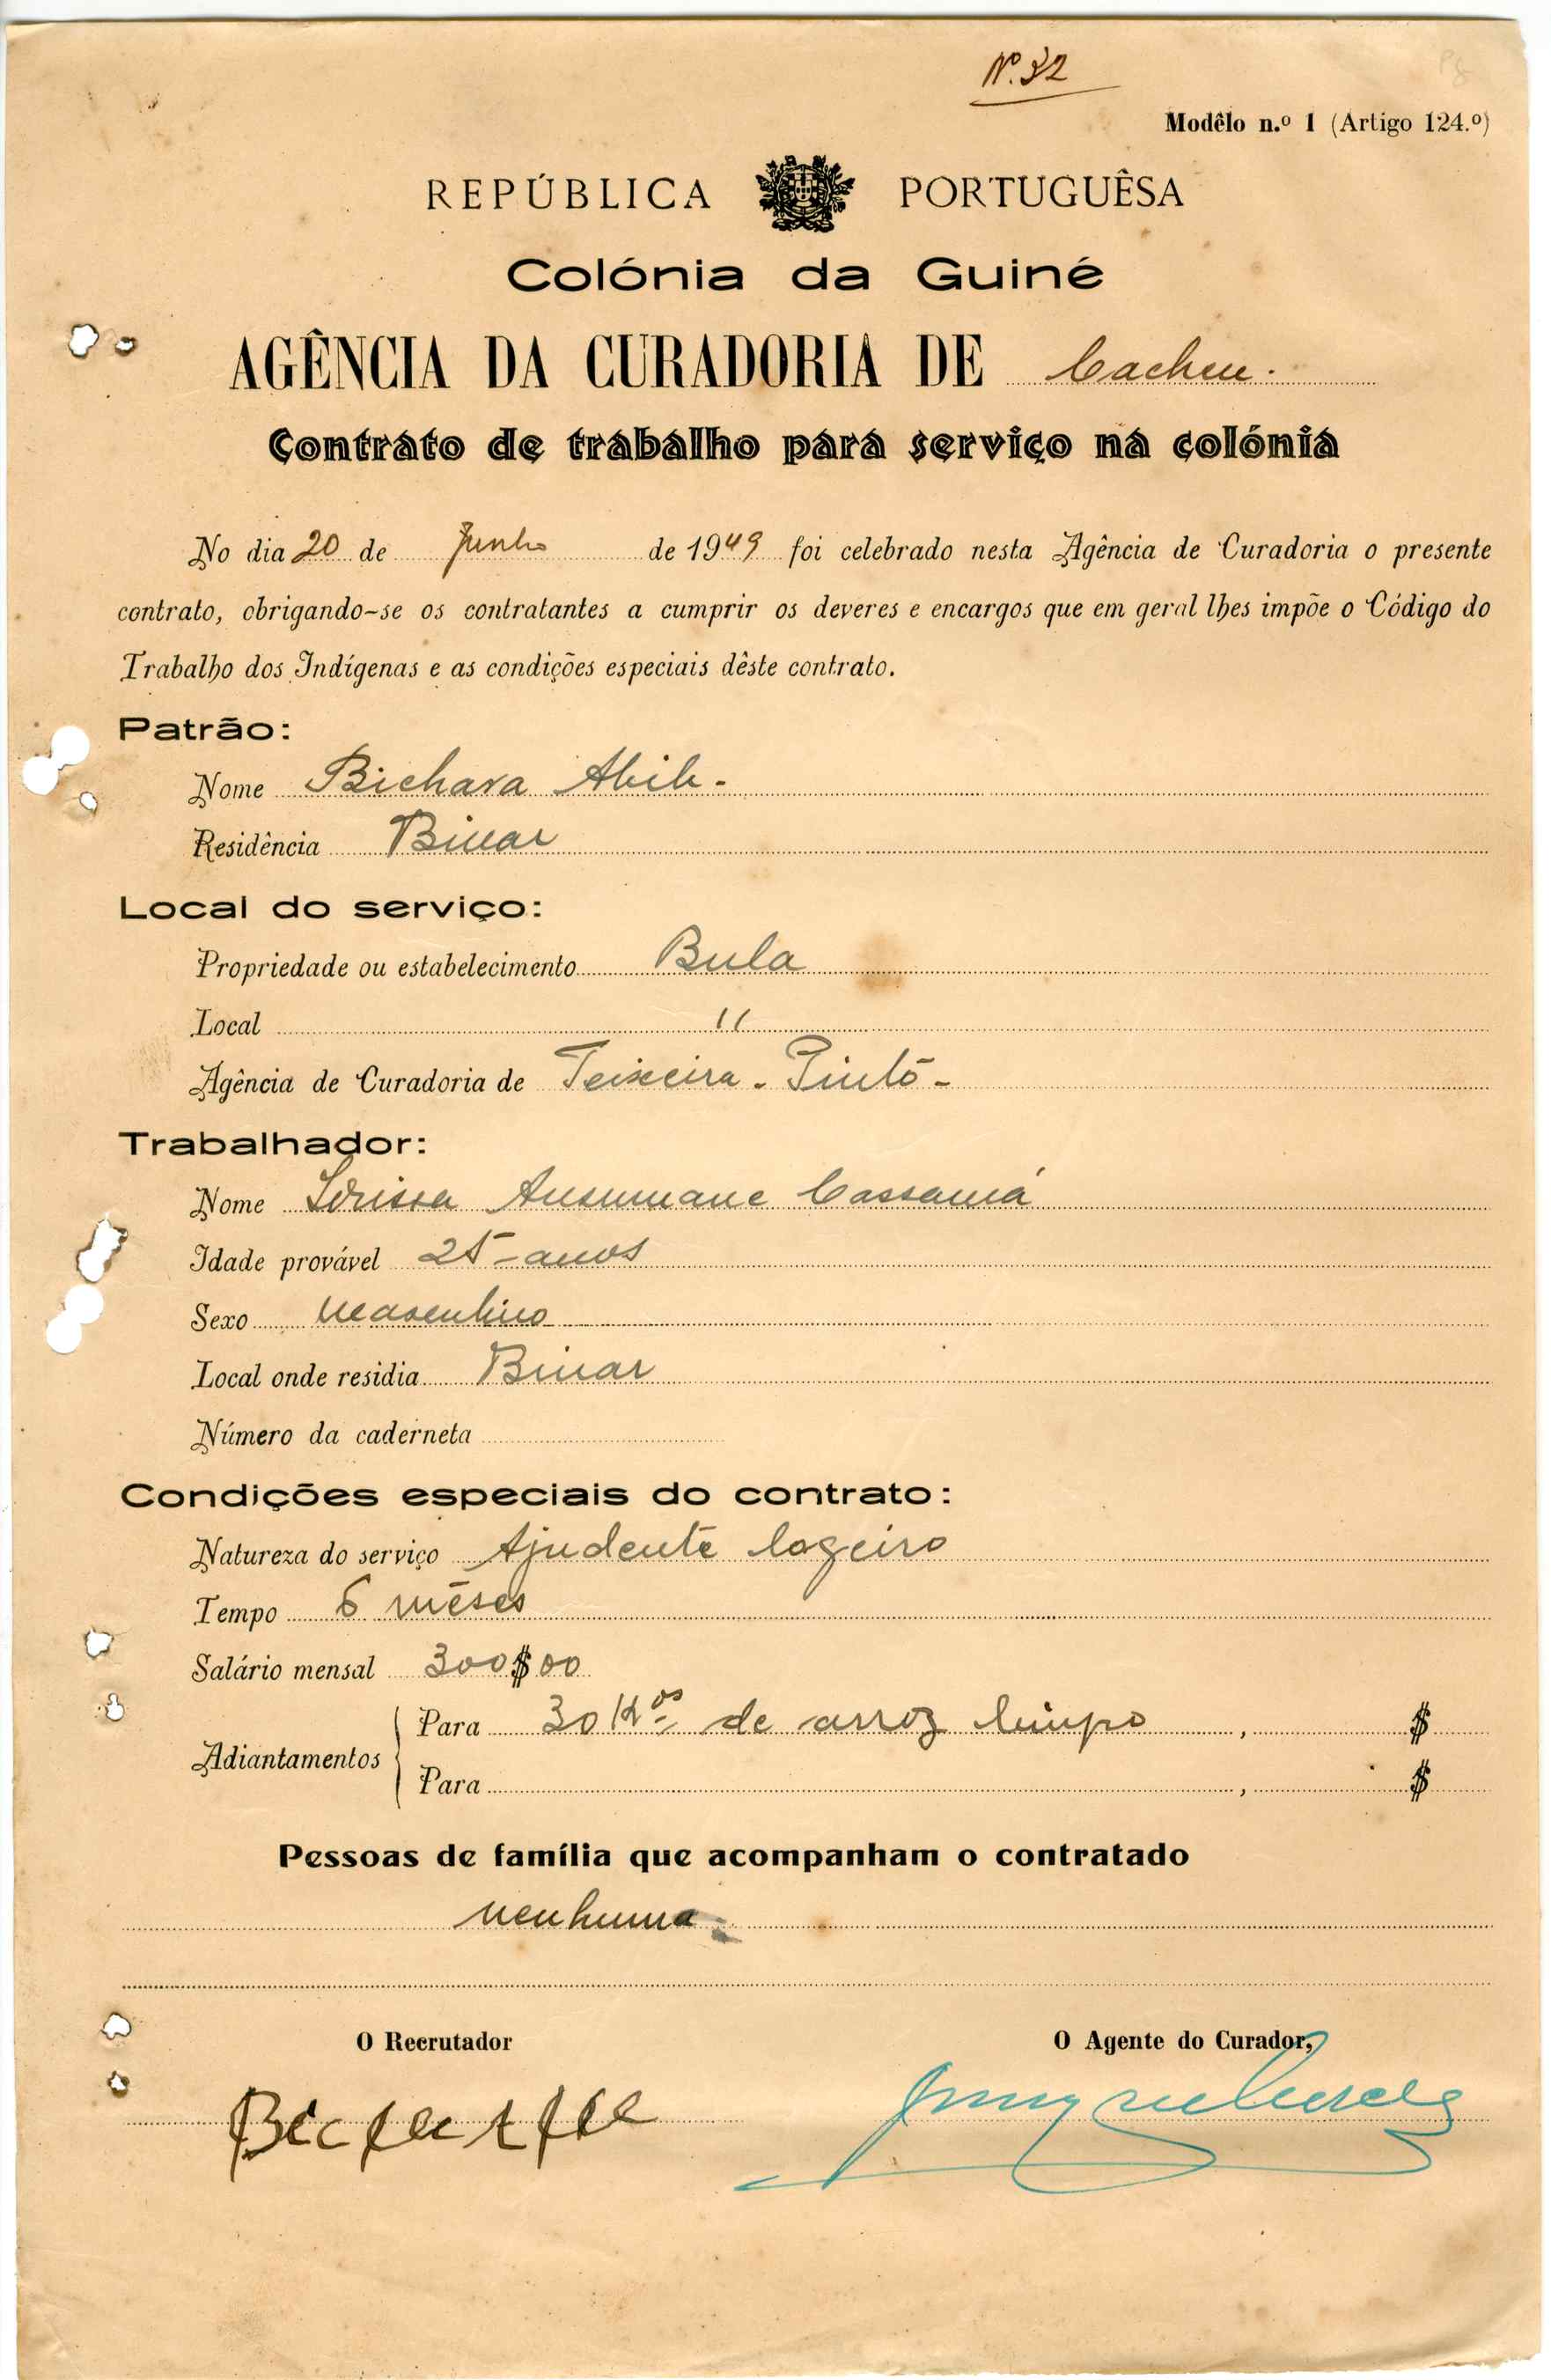 Nº. 32
Modêlo n.º 1 (Artigo 124.º)
REPÚBLICA PORTUGUÊSA
Colónia da Guiné
AGÊNCIA DA CURADORIA DE Cacheu.
Contrato de trabalho para serviço na colónia
No dia 20 de Junho de 1949 foi celebrado nesta Agência de Curadoria o presente
contrato, obrigando-se os contratantes a cumprir os deveres e encargos que em geral lhes impõe o Código do
Trabalho dos Indígenas e as condições especiais dêste contrato.
Patrão:
Nome Bichara Abib-
Residência Binar
Local do serviço:
Propriedade ou estabelecimento Bula
Local "
Agência de Curadoria de Teixeira-Pinto-
Trabalhador:
Nome Idrissa Ansumane Cassamá
Idade provável 25-anos
Sexo Masculino
Local onde residia Binar
Número da caderneta
Condições especiais do contrato:
Natureza do serviço Ajudente logeiro
Tempo 6 mêses
Salário mensal 300$00
Adiantamentos
Para 30 Kos de arroz limpo , $
Para , $
Pessoas de família que acompanham o contratado
nenhuma
O Recrutador O Agente do Curador,